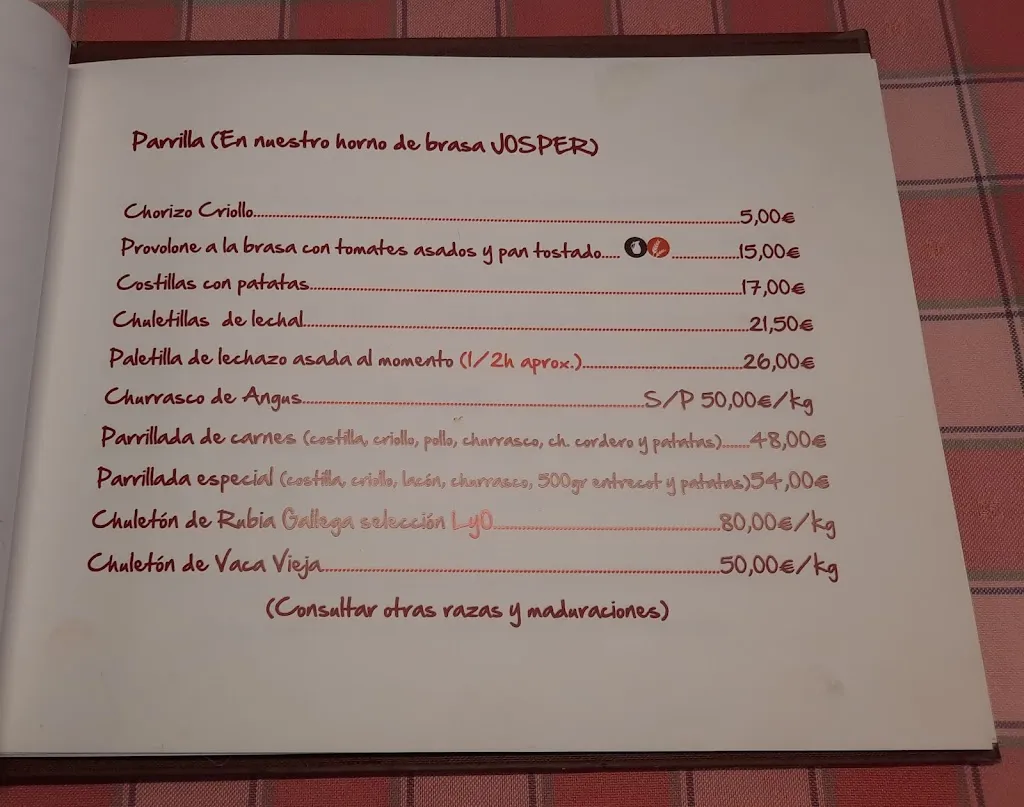 Parrilla (En nuestro horno de brasa JOSPER)
Chorizo Criollo....................5,00€
Provolone a la brasa con tomates asados y pan tostado..... ...............15,00€
Costillas con patatas....................17,00€
Chuletillas de lechal....................21,50€
Paletilla de lechazo asada al momento (1/2h aprox.)....................26,00€
Churrasco de Angus....................S/P 50,00€/kg
Parrillada de carnes (costilla, criollo, pollo, churrasco, ch. cordero y patatas)......48,00€
Parrillada especial (costilla, criollo, lacón, churrasco, 500gr entrecot y patatas)54,00€
Chuletón de Rubia Gallega selección LyO....................80,00€/kg
Chuletón de Vaca Vieja....................50,00€/kg
(Consultar otras razas y maduraciones)